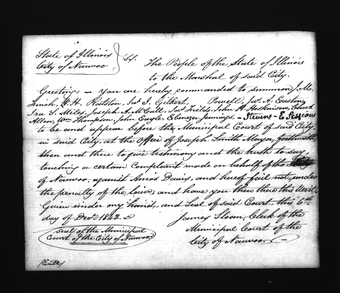 State of Illinois
City of Nauvoo
The People of the State of Illinois
to the Marshal of said City.
Greeting – you are hereby commanded to summon J. Mc.
H. H. Gilbert, Powell, Jas. A.
Ira S. Miles, Joseph A. John
Allen, Wm. Thompson, John Eagle, Ebenezer Jennings,
to be and appear before the Municipal Court of said City,
in said City, at the Office of Joseph Smith Mayor, forthwith
then and there to give testimony and the truth to say,
touching a certain Complaint made on behalf of the
of Nauvoo, against Amos Davis, and hereof fail not, under
the penalty of the law; and have you then there this Writ.
Given under my hand, and Seal of said Court, this 6th
day of Decr. 1842.
James Sloan, Clerk of the
Seal of the Municipal
Municipal Court of the
Court of the City of Nauvoo
City of Nauvoo